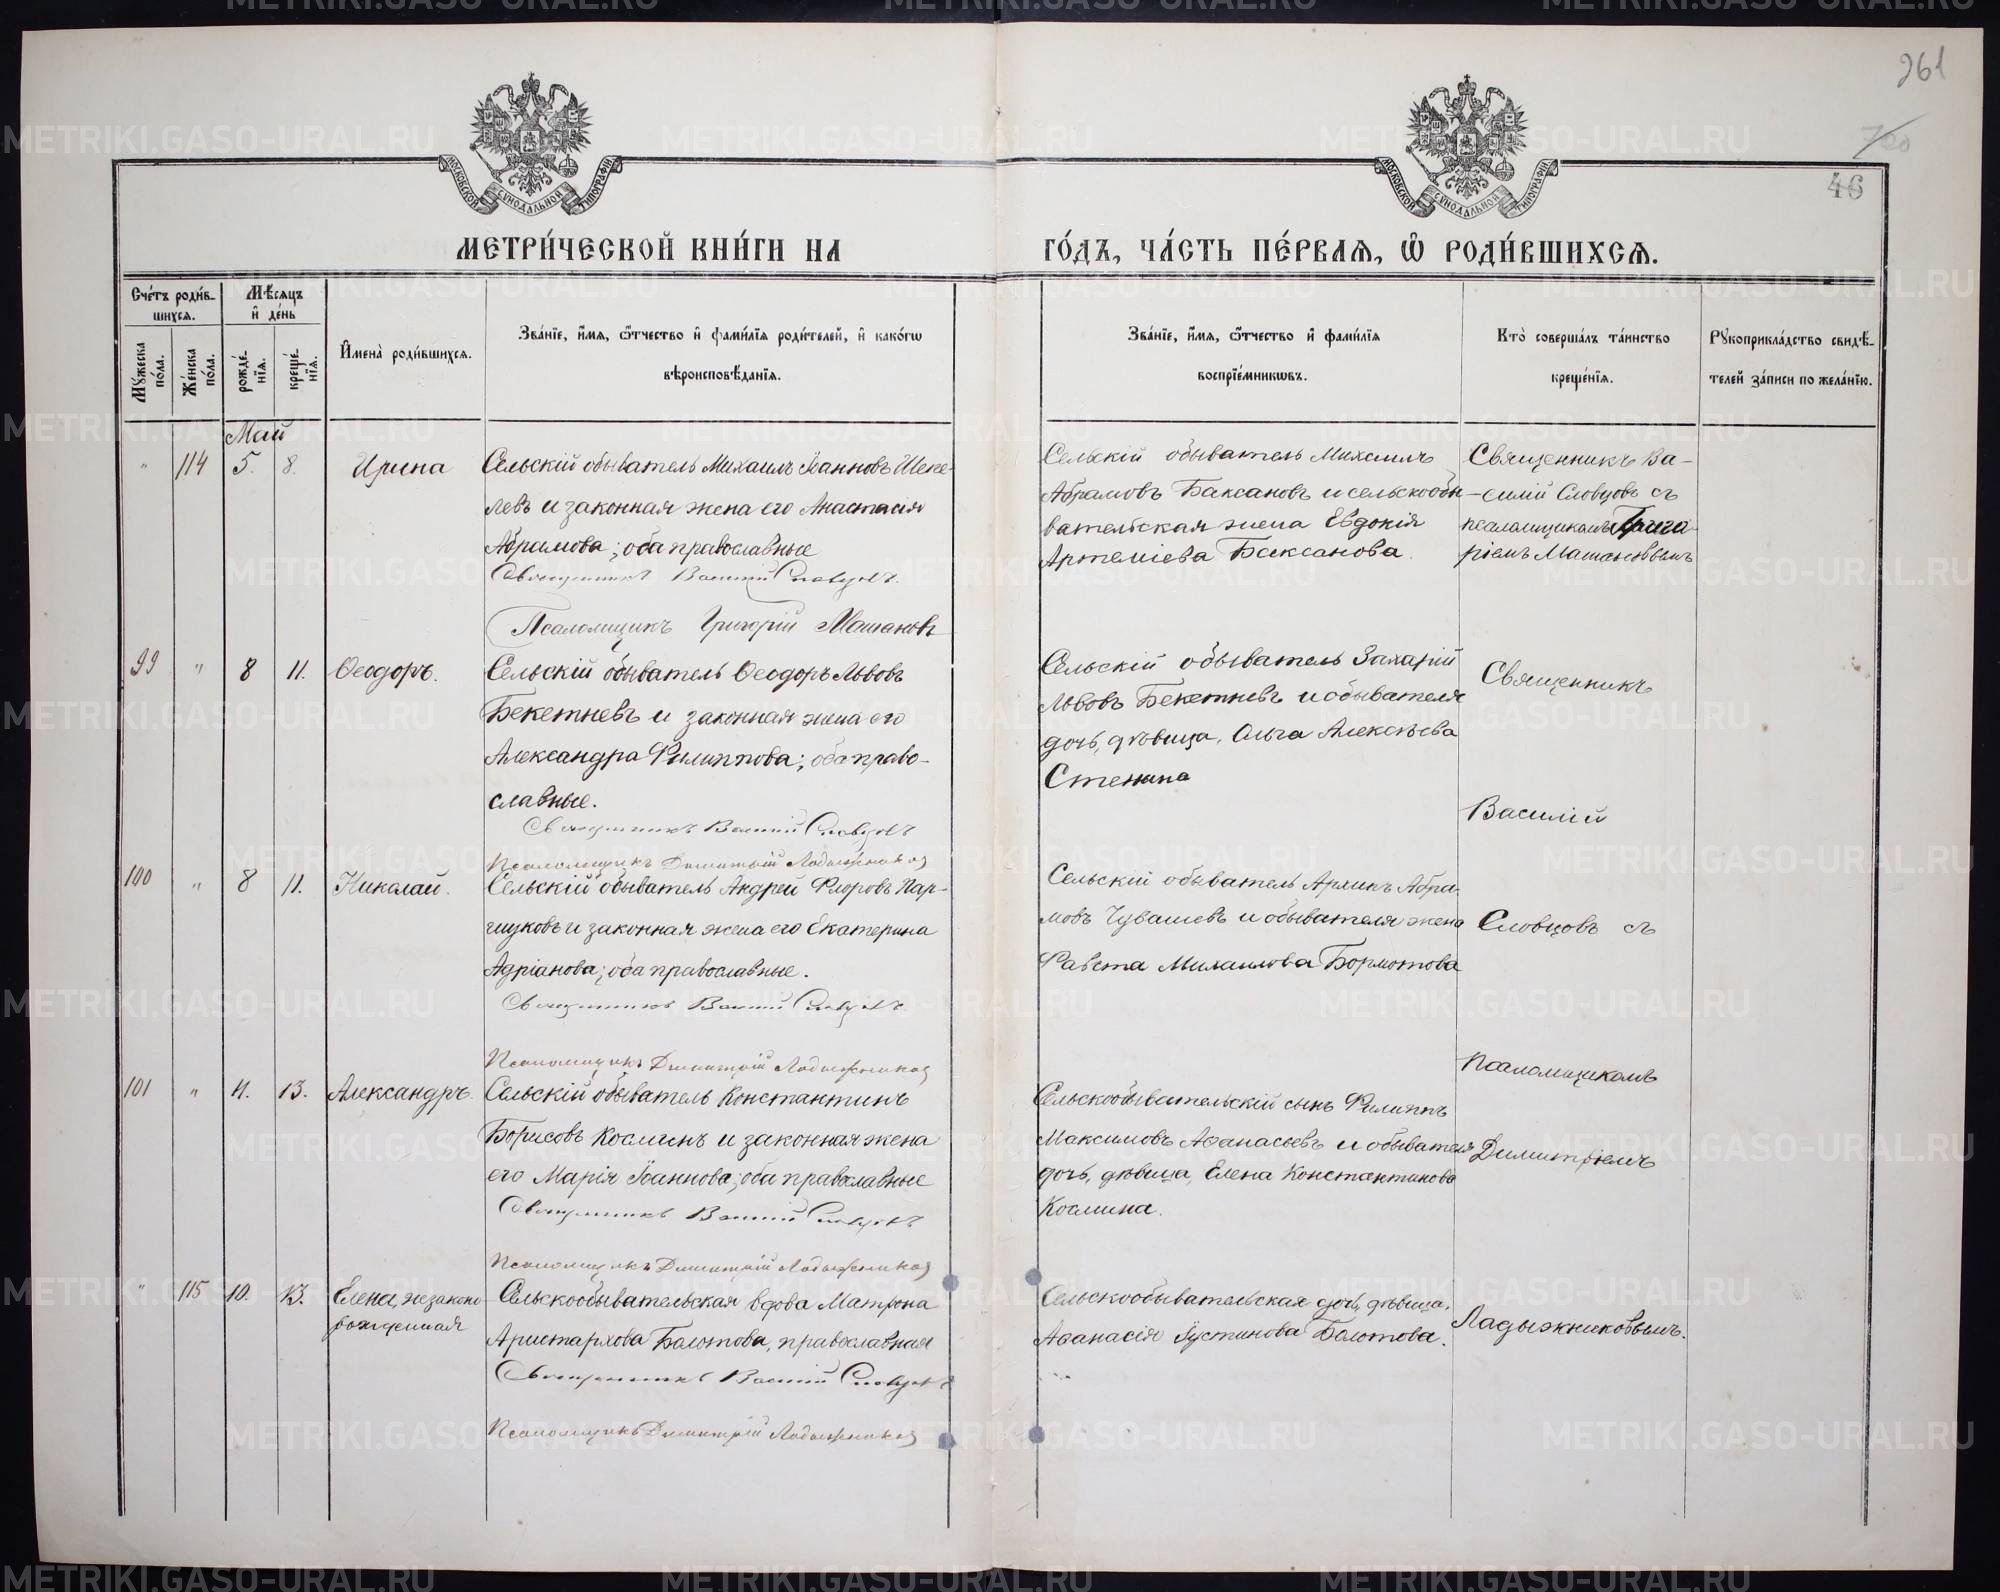 261
46
МОСКОВСКОЙ СѴНОДАЛЬНОЙ ТИПОГРАФІИ
МОСКОВСКОЙ СѴНОДАЛЬНОЙ ТИПОГРАФІИ
МЕТРИ́ЧЕСКОЙ КНИ́ГИ НА ГО́ДЪ, ЧА́СТЬ ПЕ́РВАѦ, Ѡ҆ РОДИ́ВШИХСѦ.
Сче́тъ роди́в-
шихсѧ.
Мꙋжеска по́ла.
Же́нска по́ла.
Мѣ́сѧцъ
и҆ де́нь
рожде́-
нїѧ.
креще́-
нїѧ.
И҆мена̀ роди́вшихсѧ.
Зва́нїе, и҆́мѧ, ѻ҆́тчество и҆ фами́лїѧ роди́телей, и҆ како́гѡ
вѣроисповѣ́данїѧ.
Зва́нїе, и҆́мѧ, ѻ҆́тчество и҆ фами́лїѧ
воспрїе́мникѡвъ.
Кто̀ соверша́лъ та́инство
креще́нїѧ.
Рꙋкоприкла́дство свидѣ́-
телей за́писи по жела́нїю.
Май
" 114 5. 8. Ирина
Сельскій обыватель Михаилъ Іоанновъ Шепе-
левъ и законная жена его Анастасія
Абрамова; оба православные
Священникъ Василій Словцовъ.
Псаломщикъ Григорій Машановъ
Сельскій обыватель Михаилъ
Абрамовъ Баксановъ и сельскообы-
вательская жена Евдокія
Артеміева Баксанова.
Священникъ Ва-
силій Словцовъ съ
псаломщикомъ Григо-
ріемъ Машановымъ
99 " 8 11. Ѳеодоръ.
Сельскій обыватель Ѳеодоръ Львовъ
Бекетневъ и законная жена его
Александра Филиппова; оба право-
славные.
Священникъ Василій Словцовъ
Псаломщикъ Димитрій Ладыжниковъ
Сельскій обыватель Захарій
Львовъ Бекетневъ и обывателя
дочь, дѣвица, Ольга Алексѣева
Стенина
Священникъ
Василій
100 " 8 11. Николай.
Сельскій обыватель Андрей Флоровъ Пар-
шуковъ и законная жена его Екатерина
Адріанова; оба православные.
Священникъ Василій Словцовъ
Псаломщикъ Димитрій Ладыжниковъ
Сельскій обыватель Абра-
мовъ Чувашевъ и обывателя жена
Фавста Михаилова Бормотова
Словцовъ съ
101 " 11. 13. Александръ.
Сельскій обыватель Константинъ
Борисовъ Косминъ и законная жена
его Марія Іоаннова; оба православные
Священникъ Василій Словцовъ
Псаломщикъ Димитрій Ладыжниковъ
Сельскообывательскій сынъ Филиппъ
Максимовъ Аѳанасьевъ и обывателя
дочь, дѣвица, Елена Константинова
Космина.
псаломщикомъ
Димитріемъ
" 115 10. 13. Елена, незаконно-
рожденная
Сельскообывательская вдова Матрона
Аристархова Болотова, православная
Священникъ Василій Словцовъ
Псаломщикъ Димитрій Ладыжниковъ
Сельскообывательская дочь, дѣвица,
Аѳанасія Іустинова Болотова.
Ладыжниковымъ.
METRIKI.GASO-URAL.RU